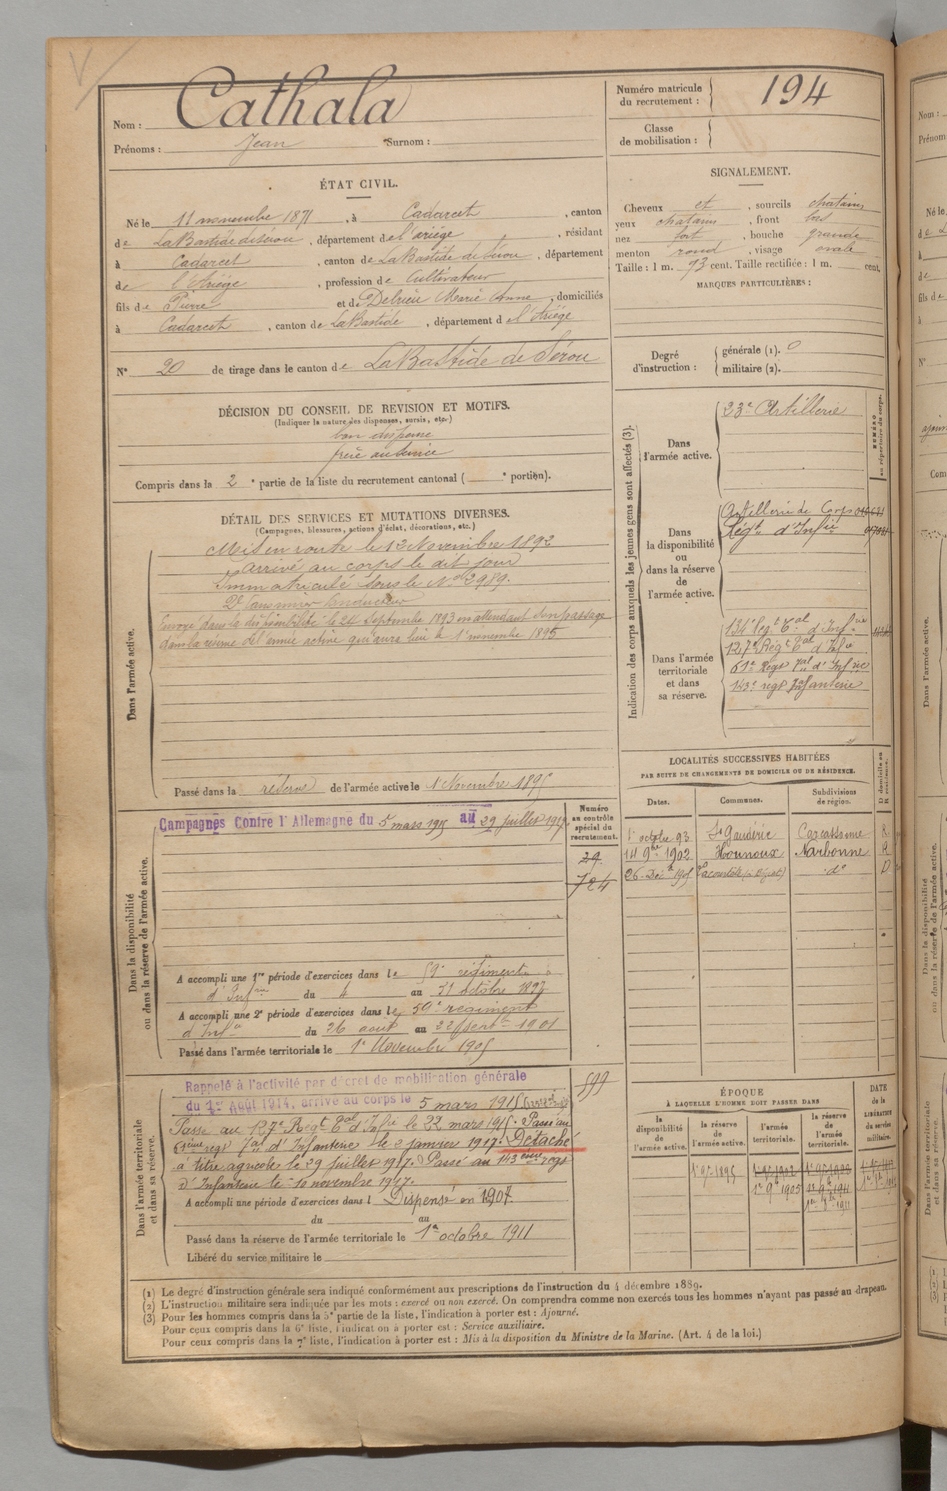 Nom : Cathala
Prénoms : Jean Surnom :
Numéro matricule du recrutement : 194
Classe de mobilisation :
ÉTAT CIVIL.
Né le 11 novembre 1871, à Cadarcet, canton
de LaBastide de Sérou, département de l'Ariège, résidant
à Cadarcet, canton de LaBastide de Sérou, département
de l'Ariège, profession de Cultivateur
fils de Pierre et de Delrieu Marie Anne, domiciliés
à Cadarcet, canton de LaBastide, département de l'Ariège
N° 20 de tirage dans le canton de LaBastide de Sérou
SIGNALEMENT.
Cheveux et, sourcils chatains
yeux chatains, front bas
nez fort, bouche grande
menton rond, visage ovale
Taille : 1 m. 73 cent. Taille rectifiée : 1 m. cent.
MARQUES PARTICULIÈRES :
Degré d'instruction : générale (1). 0
militaire (2).
DÉCISION DU CONSEIL DE REVISION ET MOTIFS.
(Indiquer la nature des dispenses, sursis, etc.)
bon dispensé
frère au service
Compris dans la 2e partie de la liste du recrutement cantonal ( e portion).
DÉTAIL DES SERVICES ET MUTATIONS DIVERSES.
(Campagnes, blessures, actions d'éclat, décorations, etc.)
Dans l'armée active.
Mis en route le 12 Novembre 1892
arrivé au corps le dit jour
Immatriculé sous le N° 2989.
2e canonnier conducteur
Envoyé dans la disponibilité le 24 Septembre 1893 en attendant son passage
dans la réserve de l'armée active qui aura lieu le 1er novembre 1895
Passé dans la réserve de l'armée active le 1 Novembre 1895
Indication des corps auxquels les jeunes gens sont affectés (3).
NUMÉRO au répertoire du corps.
Dans l'armée active.
23e Artillerie
Dans la disponibilité ou dans la réserve de l'armée active.
Artillerie de Corps
Régt d'Infie
Dans l'armée territoriale et dans sa réserve.
134e Régt Tal d'Infie
127e Régt Tal d'Infie
61e Régt Tal d'Infie
143e regt Infanterie
LOCALITÉS SUCCESSIVES HABITÉES
PAR SUITE DE CHANGEMENTS DE DOMICILE OU DE RÉSIDENCE.
Dates. Communes. Subdivisions de région. D domicile ou R résidence.
1er octobre 93 St Gaudéric Carcassonne R
14 9bre 1902 Hounoux Narbonne R
26 Dec 1905 Lacourtète d° D
Dans la disponibilité ou dans la réserve de l'armée active.
Campagnes Contre l'Allemagne du 5 mars 1915 au 29 juillet 1917
Numéro au contrôle spécial du recrutement.
29
724
A accompli une 1re période d'exercices dans le 59e régiment
d'Infie du 4 au 31 octobre 1897
A accompli une 2e période d'exercices dans le 59e regiment
d'Infie du 26 aout au 22 Septbre 1901
Passé dans l'armée territoriale le 1er Novembre 1905
Dans l'armée territoriale et dans sa réserve.
599
Rappelé à l'activité par décret de mobilisation générale
du 1er Août 1914, arrivé au corps le 5 mars 1915
Passé au 127e Régt Tal d'Infie le 22 mars 1915. Passé au
61ème regt Tal d'Infanterie le 2 janvier 1917. Détaché
à titre agricole le 29 juillet 1917. Passé au 143ème regt
d'Infanterie le 10 novembre 1917.
A accompli une période d'exercices dans l Dispensé en 1907
du au
Passé dans la réserve de l'armée territoriale le 1er octobre 1911
Libéré du service militaire le
ÉPOQUE
À LAQUELLE L'HOMME DOIT PASSER DANS
la disponibilité de l'armée active. la réserve de l'armée active. l'armée territoriale. la réserve de l'armée territoriale. DATE de la LIBÉRATION du service militaire.
1er 9bre 1895
1er 9bre 1905
(1) Le degré d'instruction générale sera indiqué conformément aux prescriptions de l'instruction du 4 décembre 1889.
(2) L'instruction militaire sera indiquée par les mots : exercé ou non exercé. On comprendra comme non exercés tous les hommes n'ayant pas passé au drapeau.
(3) Pour les hommes compris dans la 5e partie de la liste, l'indication à porter est : Ajourné.
Pour ceux compris dans la 6e liste, l'indication à porter est : Service auxiliaire.
Pour ceux compris dans la 7e liste, l'indication à porter est : Mis à la disposition du Ministre de la Marine. (Art. 4 de la loi.)